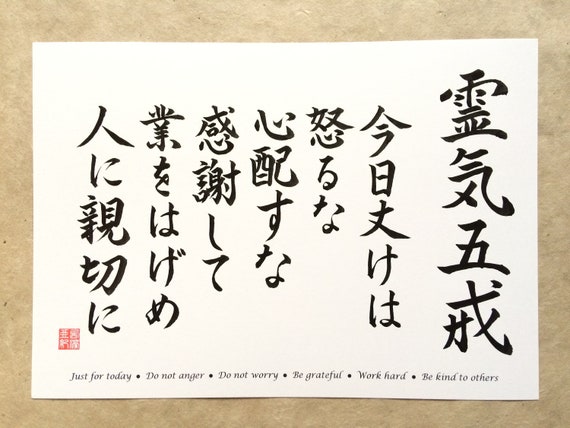 霊気五戒
今日丈けは
怒るな
心配すな
感謝して
業をはげめ
人に親切に
Just for today • Do not anger • Do not worry • Be grateful • Work hard • Be kind to others